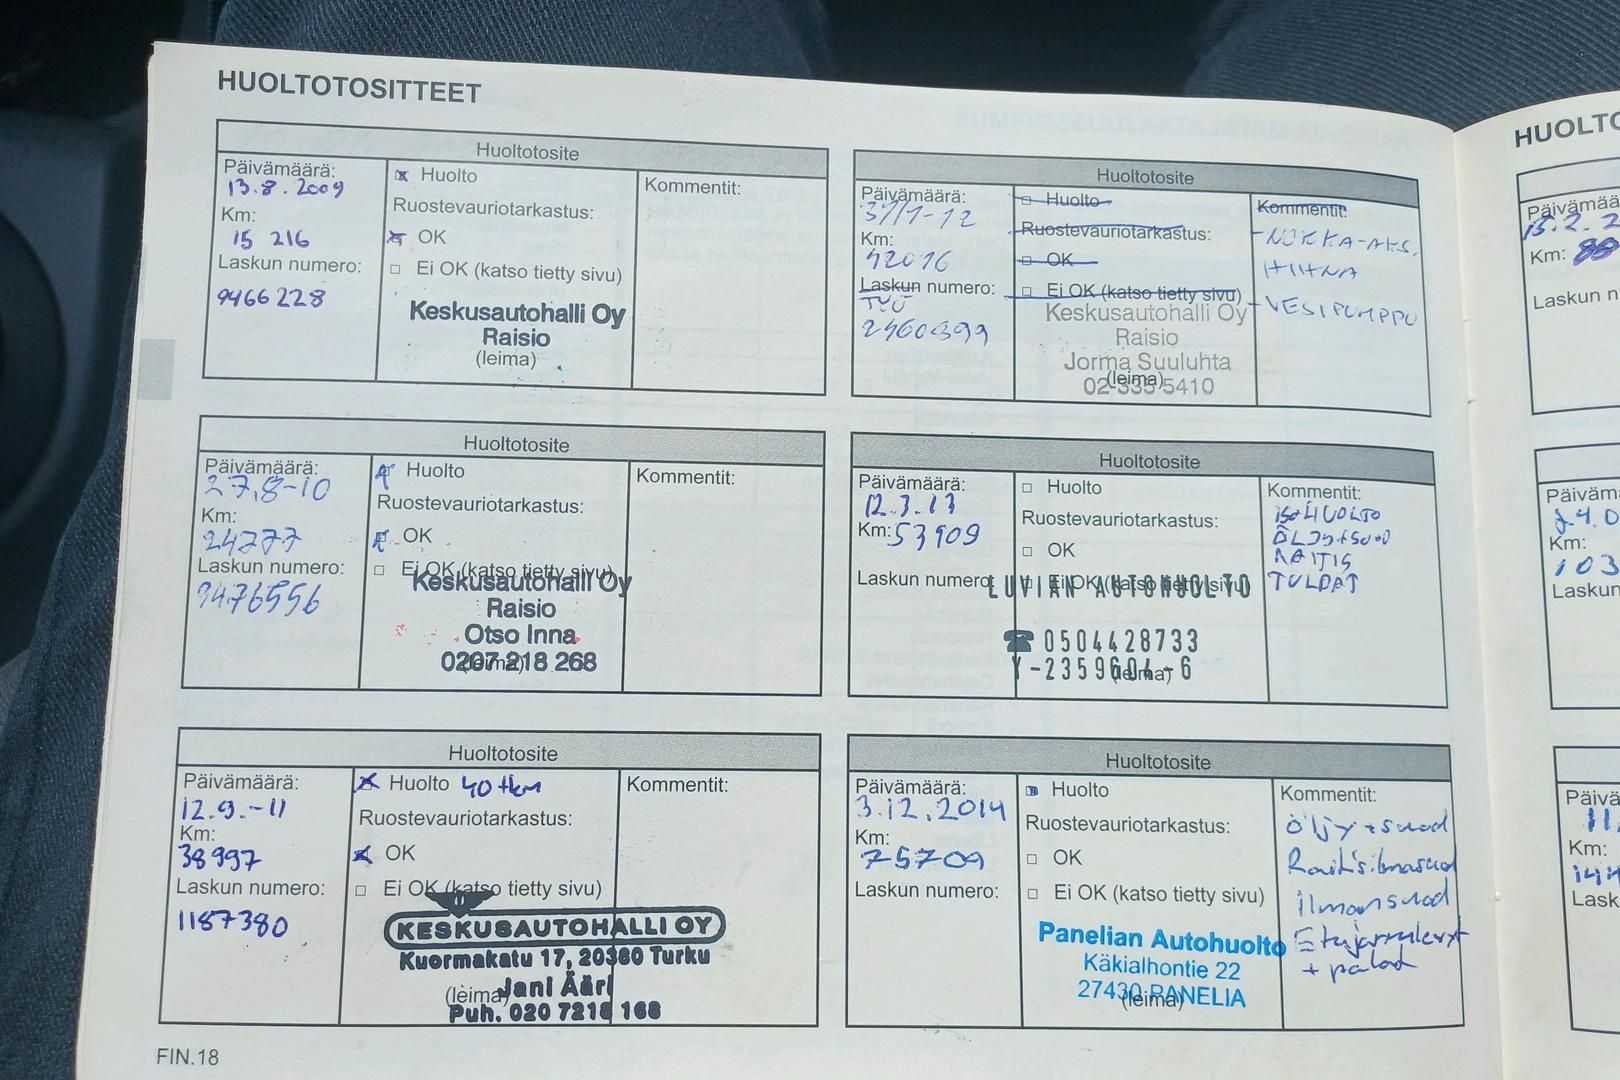 HUOLTOTOSITTEET
Huoltotosite
Päivämäärä:
13.8.2009
Km:
15 216
Laskun numero:
9466228
Huolto
Ruostevauriotarkastus:
OK
Ei OK (katso tietty sivu)
Keskusautohalli Oy
Raisio
(leima)
Kommentit:
Huoltotosite
Päivämäärä:
27,8-10
Km:
24777
Laskun numero:
9476556
Huolto
Ruostevauriotarkastus:
OK
Ei OK (katso tietty sivu)
Keskusautohalli Oy
Raisio
Otso Inna
0207 218 268
(leima)
Kommentit:
Huoltotosite
Päivämäärä:
12.9.-11
Km:
38997
Laskun numero:
1187380
Huolto 40 tkm
Ruostevauriotarkastus:
OK
Ei OK (katso tietty sivu)
KESKUSAUTOHALLI OY
Kuormakatu 17, 20380 Turku
Jani Ääri
(leima)
Puh. 020 7218 168
Kommentit:
FIN.18
Huoltotosite
Päivämäärä:
31/1-12
Km:
42016
Laskun numero:
TYÖ
2460399
Huolto
Ruostevauriotarkastus:
OK
Ei OK (katso tietty sivu)
Keskusautohalli Oy
Raisio
Jorma Suuluhta
(leima)
02-335 5410
Kommentit:
-NOKKA-AKS.
HIHNA
-VESIPUMPPU
Huoltotosite
Päivämäärä:
12.3.13
Km: 53909
Laskun numero:
Huolto
Ruostevauriotarkastus:
OK
Ei OK (katso tietty sivu)
LUVIAN AUTOHUOLTO
☎ 0504428733
Y-2359604-6
(leima)
Kommentit:
iso HUOLTO
ÖLJY+SUOD
RAITIS
TULPAT
Huoltotosite
Päivämäärä:
3.12.2014
Km:
75709
Laskun numero:
Huolto
Ruostevauriotarkastus:
OK
Ei OK (katso tietty sivu)
Panelian Autohuolto
Käkialhontie 22
27430 PANELIA
(leima)
Kommentit:
öljy+suod
Raitisilmasuod
ilmansuod
Etujarrulevyt
+ palat
HUOLTO
Päivämää
15.2.2
Km:
Laskun n
Päiväm
Km:
103
Laskun
Päivä
11.
Km:
144
Lask